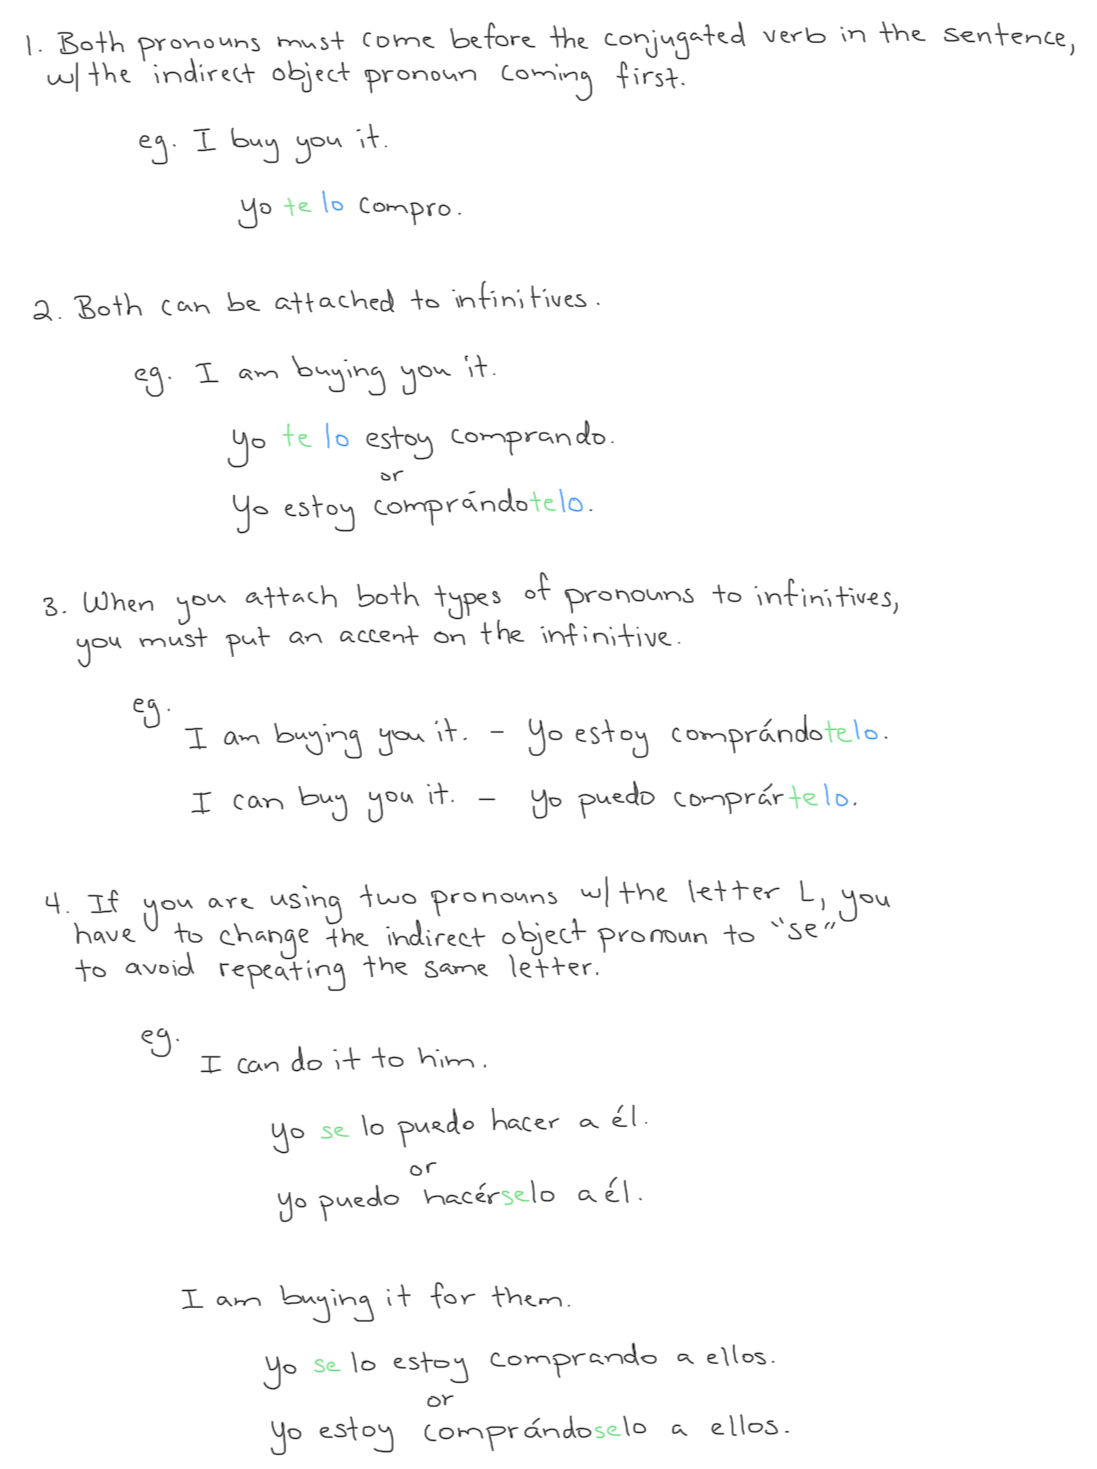 1. Both pronouns must come before the conjugated verb in the sentence,
w/ the indirect object pronoun coming first.
eg. I buy you it.
yo te lo compro.
2. Both can be attached to infinitives.
eg. I am buying you it.
yo te lo estoy comprando.
or
yo estoy comprándotelo.
3. When you attach both types of pronouns to infinitives,
you must put an accent on the infinitive.
eg.
I am buying you it. - yo estoy comprándotelo.
I can buy you it. - yo puedo comprártelo.
4. If you are using two pronouns w/ the letter L, you
have to change the indirect object pronoun to "se"
to avoid repeating the same letter.
eg.
I can do it to him.
yo se lo puedo hacer a él.
or
yo puedo hacérselo a él.
I am buying it for them.
yo se lo estoy comprando a ellos.
or
yo estoy comprándoselo a ellos.